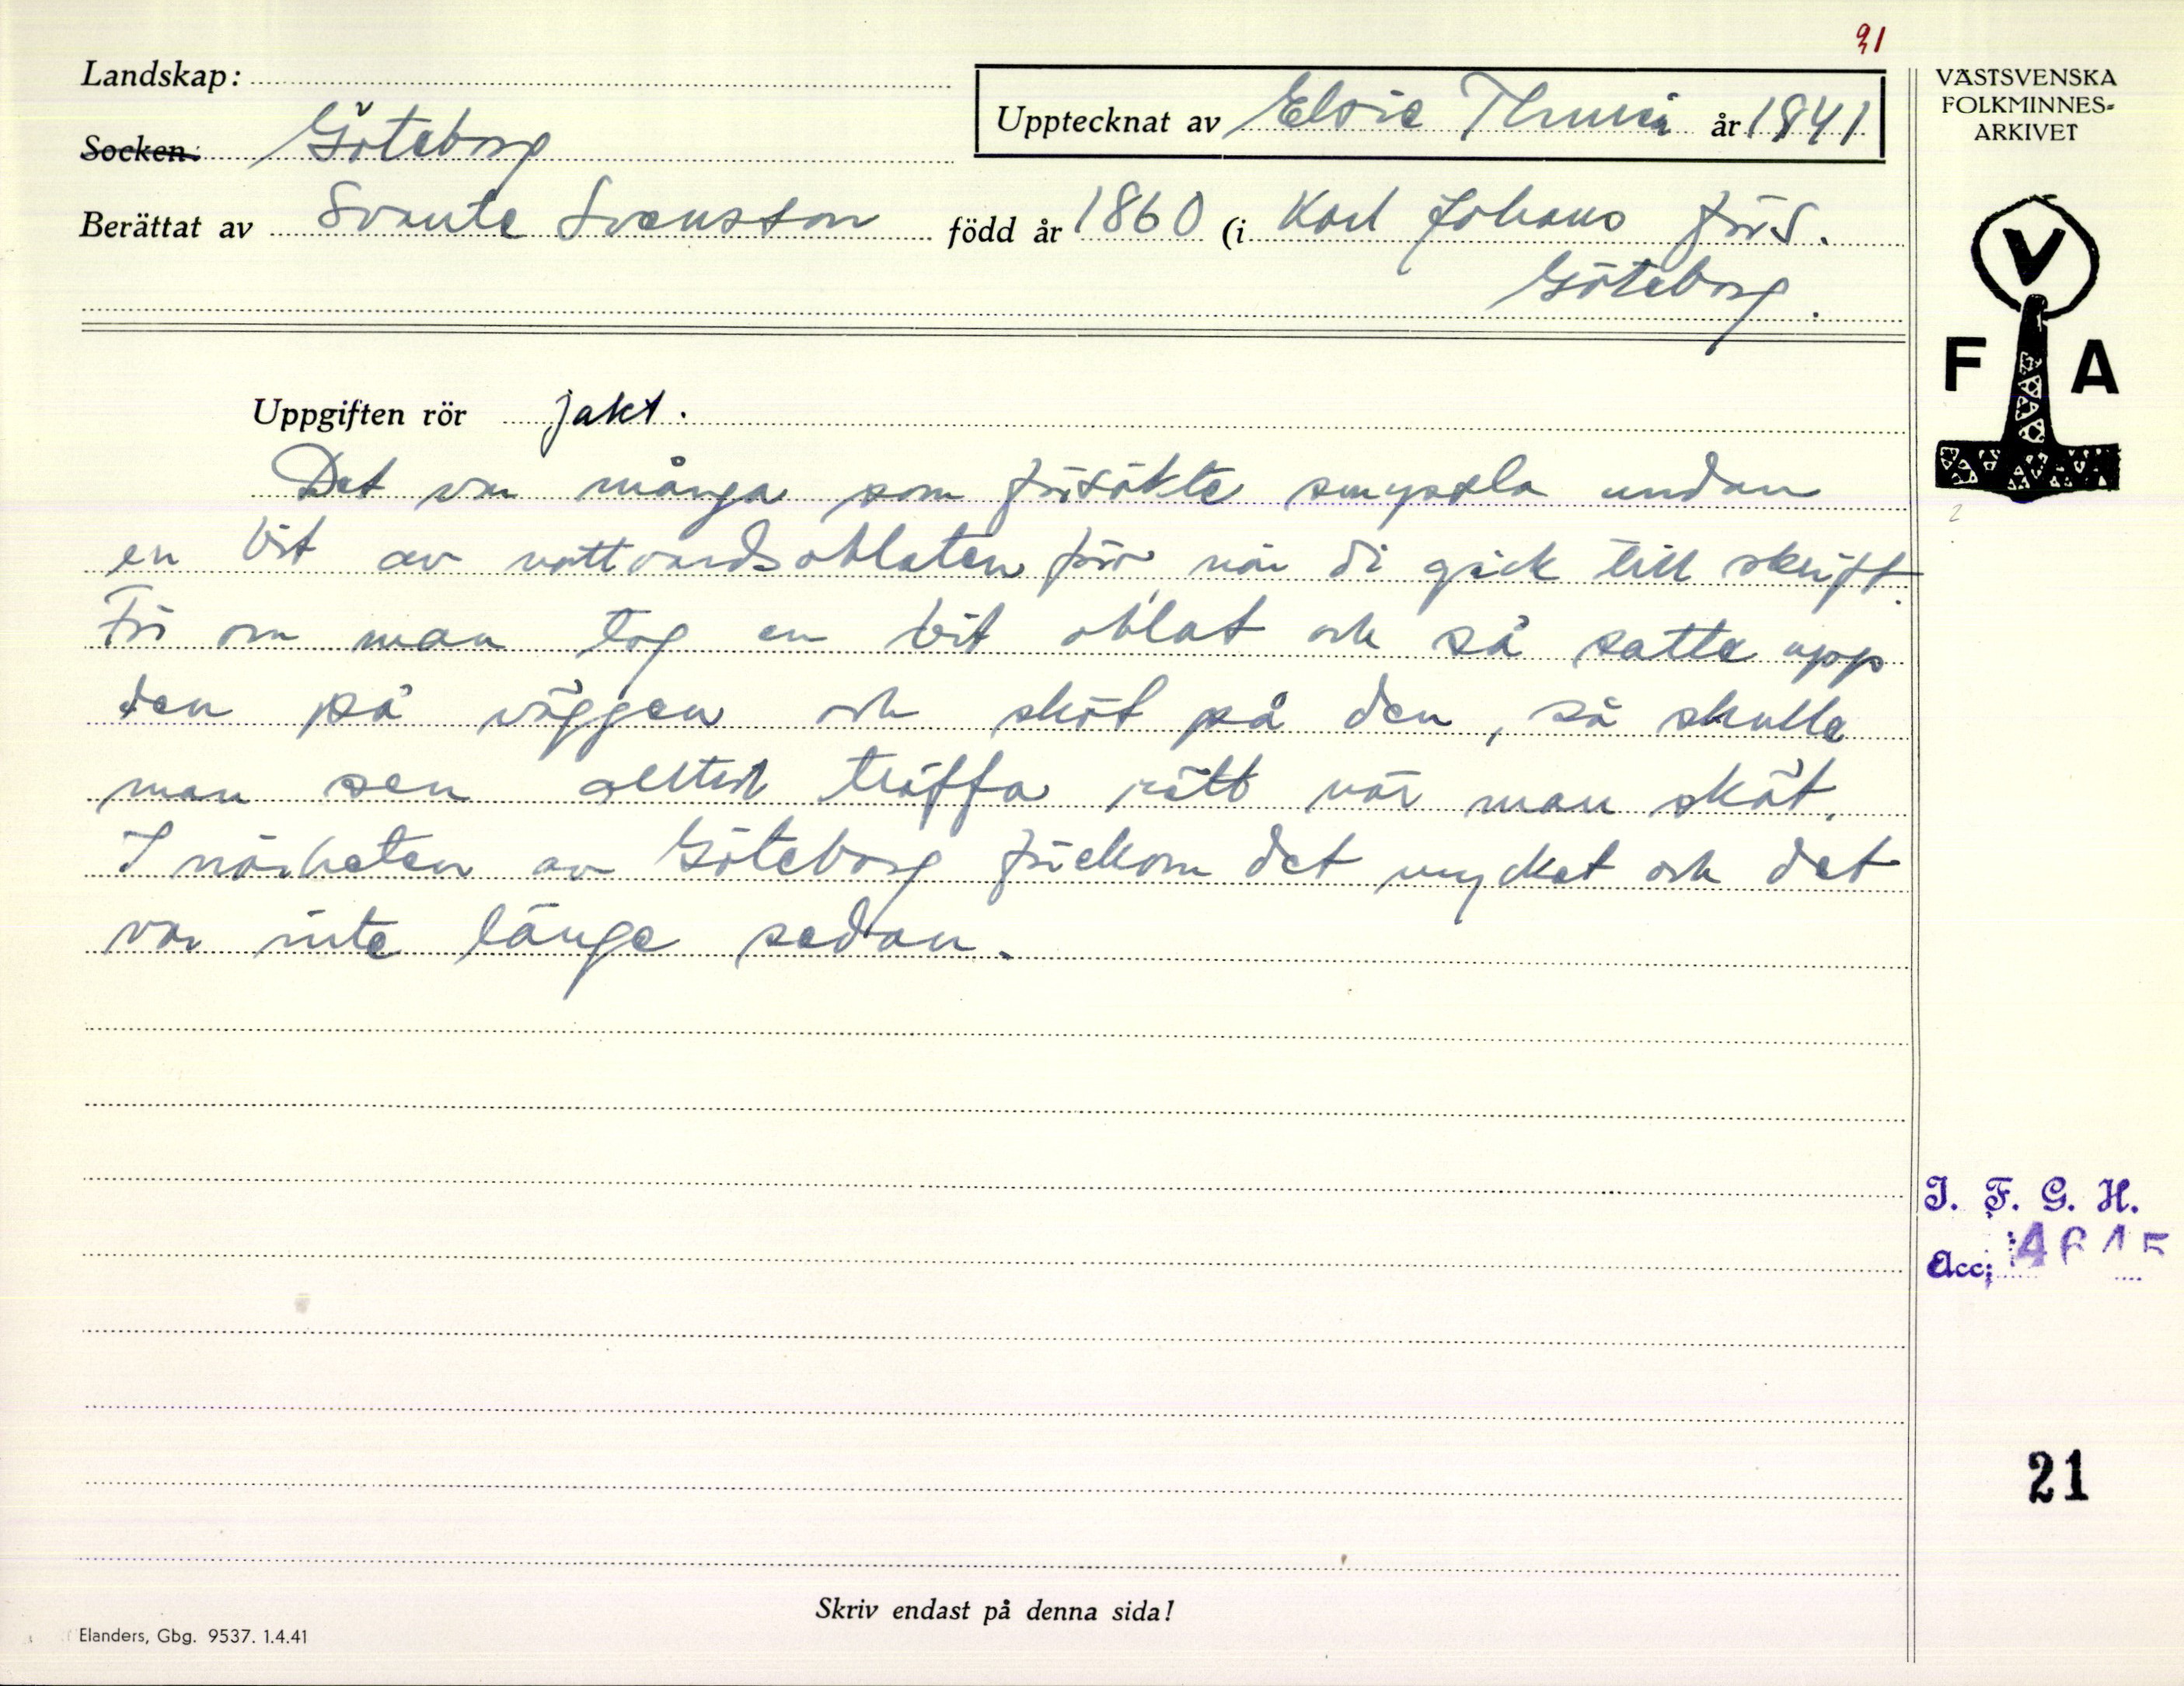 91
Landskap:
Socken: Göteborg
Upptecknat av Elsie år 1941
Berättat av Svante Svensson född år 1860 (i Karl Johans förs.
Göteborg.
VÄSTSVENSKA
FOLKMINNES-
ARKIVET
V
F A
Uppgiften rör jakt.
Det var många som försökte smussla undan
en bit av nattvardsoblaten förr, när di gick till skrift.
För om man tog en bit oblat och så satte upp
den på väggen och sköt på den, så skulle
man sen alltid träffa rätt när man sköt.
I närheten av Göteborg förekom det mycket och det
var inte länge sedan.
I. F. G. H.
Acc:
21
Skriv endast på denna sida!
Elanders, Gbg. 9537. 1.4.41